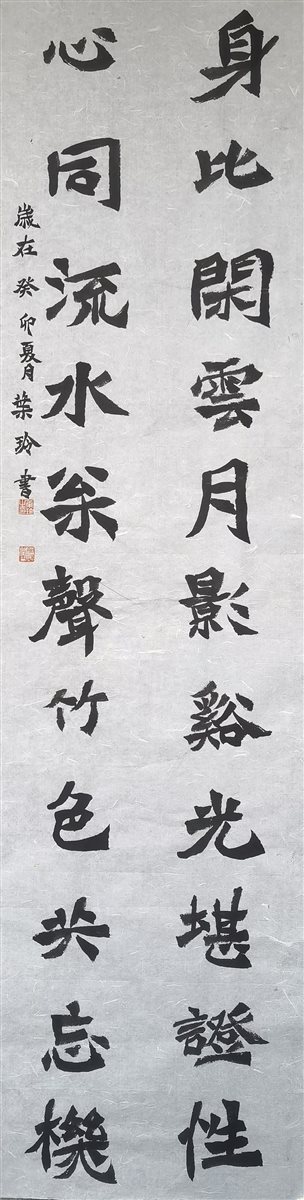 身比閑雲月影谿光堪證性
心同流水枀聲竹色共忘機
歲在癸卯夏月葉玲書